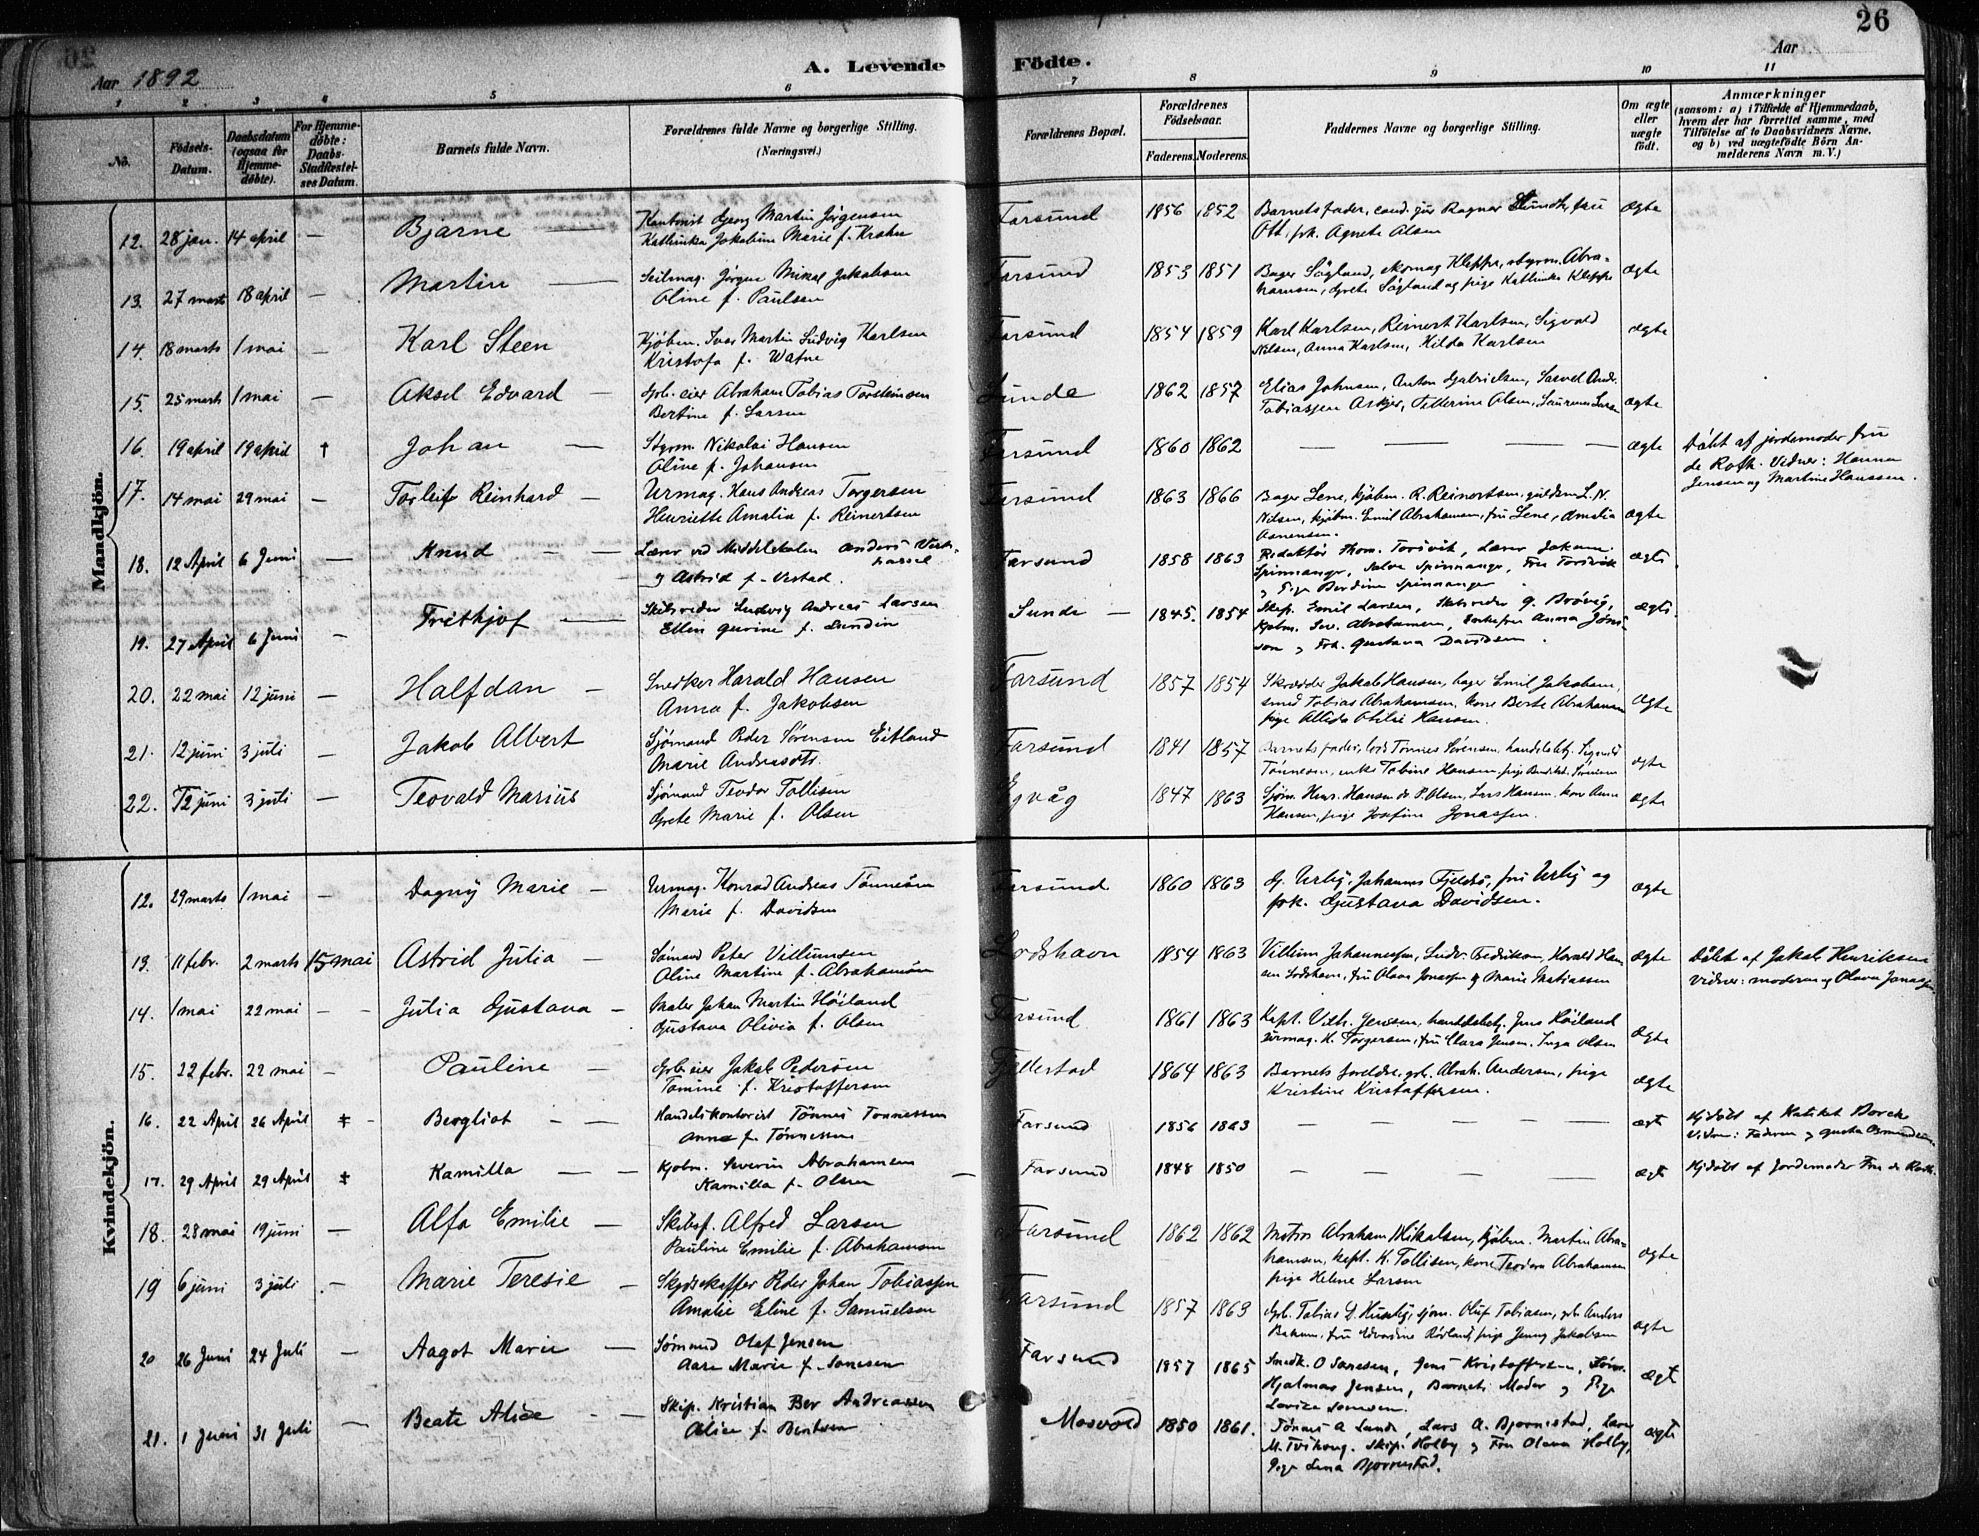 26
Aar 1892
A. Levende Födte.
Aar
1 2 3 4 5 6 7 8 9 10 11
No.
Födsels-Datum.
Daabsdatum (ogsaa for Hjemme-döbte).
For Hjemme-döbte: Daabs-Stadfæstel-ses Datum.
Barnets fulde Navn.
Forældrenes fulde Navne og borgerlige Stilling.
(Næringsvei.)
Forældrenes Bopæl.
Forældrenes Födselsaar.
Faderens. Moderens.
Faddernes Navne og borgerlige Stilling.
Om ægte eller uægte födt.
Anmærkninger
(saasom: a) i Tilfælde af Hjemmedaab,
hvem der har forrettet samme, med
Tilföielse af to Daabsvidners Navne,
og b) ved uægtefödte Börn An-
melderens Navn m. V.)
Mandkjön.
12. 28 jan. 14 april — Bjarne — Kontorist Georg Martin Jørgensen Farsund 1856 1852 Barnets fader, cand. jur Ragnar fru ægte
Kathinka Jokabine Marie f. Krahn Ott, frk. Agnete Olsen
13. 27 marts 18 april — Martin — Seilmag. Jørgen Mikal Jakobsen Farsund 1853 1851 Bager Sågland, skomag Kleppe, styrm. Abra- ægte
Oline f. Paulsen hamsen, Grete Sågland og pige Kathinka Kleppe
14. 18 marts 1 mai — Karl Steen Kjøbm. Ivar Martin Ludvig Karlsen Farsund 1854 1859 Karl Karlsen, Reinert Karlsen, Sigvald ægte
Kristofa f. Watne Nilsen, Anna Karlsen, Hilda Karlsen
15. 25 marts 1 mai — Aksel Edvard — Grb. eier Abraham Tobias Torsteinsen Sunde 1862 1857 Elias Johnsen, Anton Gabrielsen, ægte
Bertine f. Larsen Tobiassen Olsen,
16. 19 april 19 april † Johan — Styrm. Nikolai Hansen Farsund 1860 1862 — — — — ægte Døbt af jordemoder fru
Oline f. Johansen de Roth. Vidner: Hanna
Jensen og Martine Hanssen.
17. 14 mai 29 mai — Torleif Reinhard — Urmag. Hans Andreas Torgersen Farsund 1863 1866 Bager Lene, kjøbm. R. Reinertsen, guldsm L. N. ægte
Henriette Amalia f. Reinertsen Nilsen, kjøbm. Emil Abrahamsen, fru Lene, Amalia
18. 12 April 6 Juni — Knud — — Lærer ved Middelskolen Anders Vest- Farsund 1858 1863 Redaktør Thom. Torsvik, Lærer Jakum. ægte
hassel
og Astrid f. Vestad. Spinnanger, Salve Spinnanger, Fru Torsvik
og Pige Berdine Spinnanger
19. 27 April 6 Juni — Frithjof — Skibsreder Ludvig Andreas Larsen Sunde — 1845. 1854 Skip. Emil Larsen, Skibsreder G. Brøvig, ægte
Ellen Gurine f. Lundin Kjøbm. Sev. Abrahamsen, Anna
og Frk. Gustava Davidsen.
20. 22 mai 12 juni — Halfdan — Snedker Harald Hansen Farsund 1857 1854 Skrædder Jakob Hansen, bager Emil Jakobsen, ægte
Anna f. Jakobsen smed Tobias Abrahamsen, kone Berte Abrahamsen
pige Otilie Hansen.
21. 12 juni 3 juli — Jakob Albert Sjømand Peder Sørensen Eitland Farsund 1841 1857 Barnets fader, lods Tønnes Sørensen, handelsbetj. Sigvald ægte
Marie Andreasdtr. Tønnesen, enke Tobine Hansen, pige
22. 12 juni 3 juli — Teovald Marius Sjømand Teodor Tollisen Egvåg 1847 1863 Sjøm. Hans Hansen, do P. Olsen, Lars Hansen, kone Anne ægte
Grete Marie f. Olsen Hansen, pige Josefine Jonassen.
Kvindekjön.
12. 29 marts 1 mai — Dagny Marie — Urmag. Konrad Andreas Tønnesen Farsund 1860 1863 G. Urbig, Johannes Fjeldså, fru Urbig og ægte
Marie f. Davidsen frk. Gustava Davidsen.
13. 11 febr. 2 marts 15 mai Astrid Julia — Sømand Peter Villumsen Lodshavn 1854 1863 Villum Johannessen, Ludv. Fredriksen, Harald Han- ægte Døbt af Jakob Henriksen
Oline Martine f. Abrahamsen sen Lodshavn, fru Olava Jonassen og Marie Matiassen vidner: moderen og Olava Jonassen.
14. 1 mai 22 mai — — Julia Gustava — Maler Johan Martin Høiland Farsund 1861 1863 Kapt. Vilh. Jensen, handelsbetj. Jens Høiland ægte
Gustava Olivia f. Olsen urmag. H. Torgersen, fru Clara Jensen, Inga Olsen
15. 22 febr. 22 mai — Pauline — Grb. eier Jakob Pedersen Gjellestad 1864 1863 Barnets foreldre, grb. Abrah. Andersen, pige ægte
Tomine f. Kristoffersen Kristine Kristoffersen.
16. 22 April 26 April ‡ - Bergliot - — Handelskontorist Tönnes Tonnessen Farsund 1856 1863 — — — — ægt Hjdøbt af Katiket Borch
Anne f. Tönnessen Vidner: Faderen og
17. 29 April 29 April ‡ Kamilla — — Kjobm. Severin Abrahamsen Farsund 1848 1850 — — — — ægt Hjdøbt af Jordemoder Fru de Roth.
Kamilla f. Olsen
18. 28 mai 19 juni — Alfa Emilie — Skibsf. Alfred Larsen Farsund 1862 1862 Matros Abraham Mikalsen, kjøbm. Martin Abra- ægte
Pauline Emilie f. Abrahamsen hamsen, kapt. K. Tollisen, kone Teodora Abrahamsen
pige Helene Larsen
19 6 juni 3 juli — Marie Teresie — Skydsskaffer Peder Johan Tobiassen Farsund 1857 1863 Grb. Tobias sjøm. Oluf Tobiasen, grb. Anders ægte
Amalie Eline f. Samuelsen fru pige Jenny Jakobsen
20 26 Juni 24 Juli — Aagot Marie — Sømand Olaf Jensen Farsund 1857 1865 Smedk. O Sanesen, Jens Kristoffersen, ægt
Aase Marie f. Sanesen Hjalmar Jensen, Barnets Moder og Pige
21. 1 Juni 31 Juli — Beate Alice — — Skip. Kristian Ber Andreassen Mosvold 1850 1861. Tönnes A Lunde, Lars A. Bjornestad, ægte
Alice f. Berntsen M. Tvihoug. Skip. Holby og Fru Olava Holby,
Pige Lena Bjornestad.